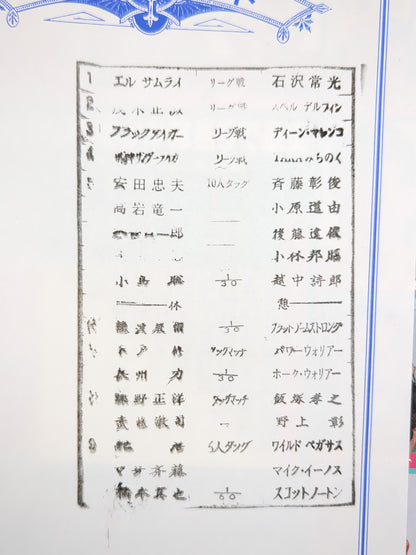 1 エル サムライ リーグ戦 石沢常光
2 茂木正淑 リーグ戦 スペル デルフィン
3 ブラックタイガー リーグ戦 ディーン・マレンコ
4 リーグ戦 みちのく
5 安田忠夫 10人タッグ 斉藤彰俊
高岩竜一 小原道由
一郎 後藤達俊
小林邦昭
小島聡 1/30 越中詩郎
休 憩
1/30 ブラット・アームストロング
木戸修 タッグマッチ パワー・ウォリアー
長州力 1/30 ホーク・ウォリアー
蝶野正洋 タッグマッチ 飯塚孝之
武藤敬司 野上彰
6人タッグ ワイルド ペガサス
マサ斉藤 マイク・イーノス
橋本真也 1/60 スコットノートン